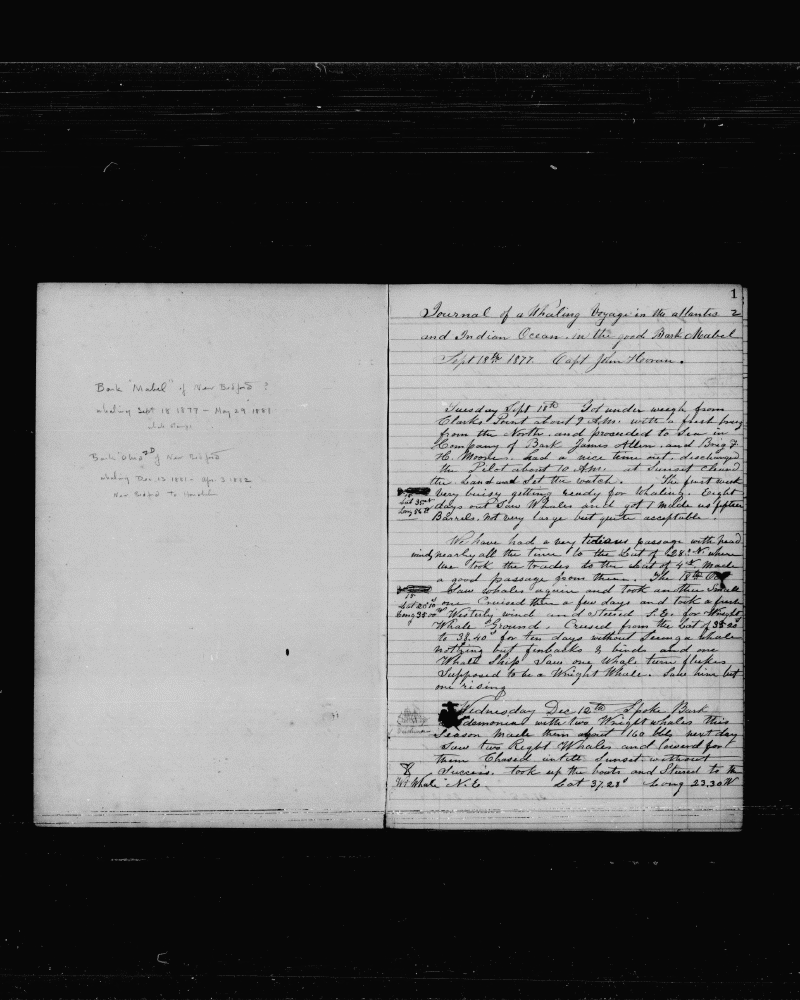 Bark "Mabel" of New Bedford ?
whaling Sept 18 1877 - May 29 1881
Bark Ohio 2D of New Bedford
whaling Dec. 13 1881 - Apr. 3 1882
New Bedford to Honolulu
1
Journal of a Whaling Voyage in the atlantic &
and Indian Ocean. in the good Bark Mabel
Sept 18th 1877. Capt John Hooran.
Tuesday Sept 18th Got under weigh from
Clarks Point about 9 A.M. with a fresh breeze
from the North. and proceeded to Sea in
Company of Bark James Allen. and Brig F.
H. Moore. had a nice time out. discharged
the Pilot about 10 A.M. at Sunset cleared
the Land and Set the watch. The first week
Very buisy getting ready for Whaling. Eight
Lat 35
Long 56
days out Saw Whales and got 1 made us fifteen
Barrels. Not very large but quite acceptable.
We have had a very tedious passage with head
winds nearly all the time to the Lat of 28° N where
we took the trades to the Lat of 4° N made
a good passage from them. The 18th
15
Saw whales again and took another Small
one Cruised there a few days and took a fresh
Long 35.00
Westerly wind and Steered S.E. for Wright
Whale Ground. Crused from the Lat of 35.20
to 38.40 for ten days without Seeing a whale
nothing but finbacks & birds and one
Whale Ship. Saw one Whale turn flukes
Supposed to be a Wright Whale. Saw him but
one rising
Wednesday Dec 12th Spoke Bark
with two Wright whales this
Season made them about 160 bbls next day
Saw two Right Whales and lowerd for
them Chased untill Sunset without
Success. took up the boats and Steered to the
Wt Whale N.E. Lat 37.28 Long 23.30 W